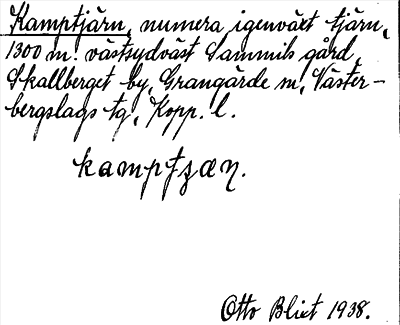 Kamptjärn, numera igenväxt tjärn,
1300 m. västsydväst Sammils gård,
Skallberget by, Grangärde sn, Väster-
bergslags tg, Kopp. l.
kamptʒæn.
Otto Blixt 1938.